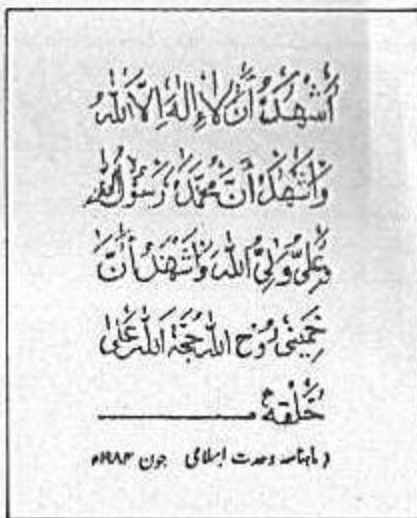 أَشْهَدُ أَنْ لَا إِلٰهَ اِلَّا اللهُ
وَاَشْهَدُ أَنَّ مُحَمَّدًا رَسُوْلُ اللهِ
وَعَلِيٌّ وَلِيُّ اللهِ وَاَشْهَدُ أَنَّ
خُمِيْنِيْ رُوْحُ اللهِ حُجَّةُ اللهِ عَلٰى
خَلْقِهٖ
(ماہنامہ وحدت اسلامی جون ۱۹۸۴ء